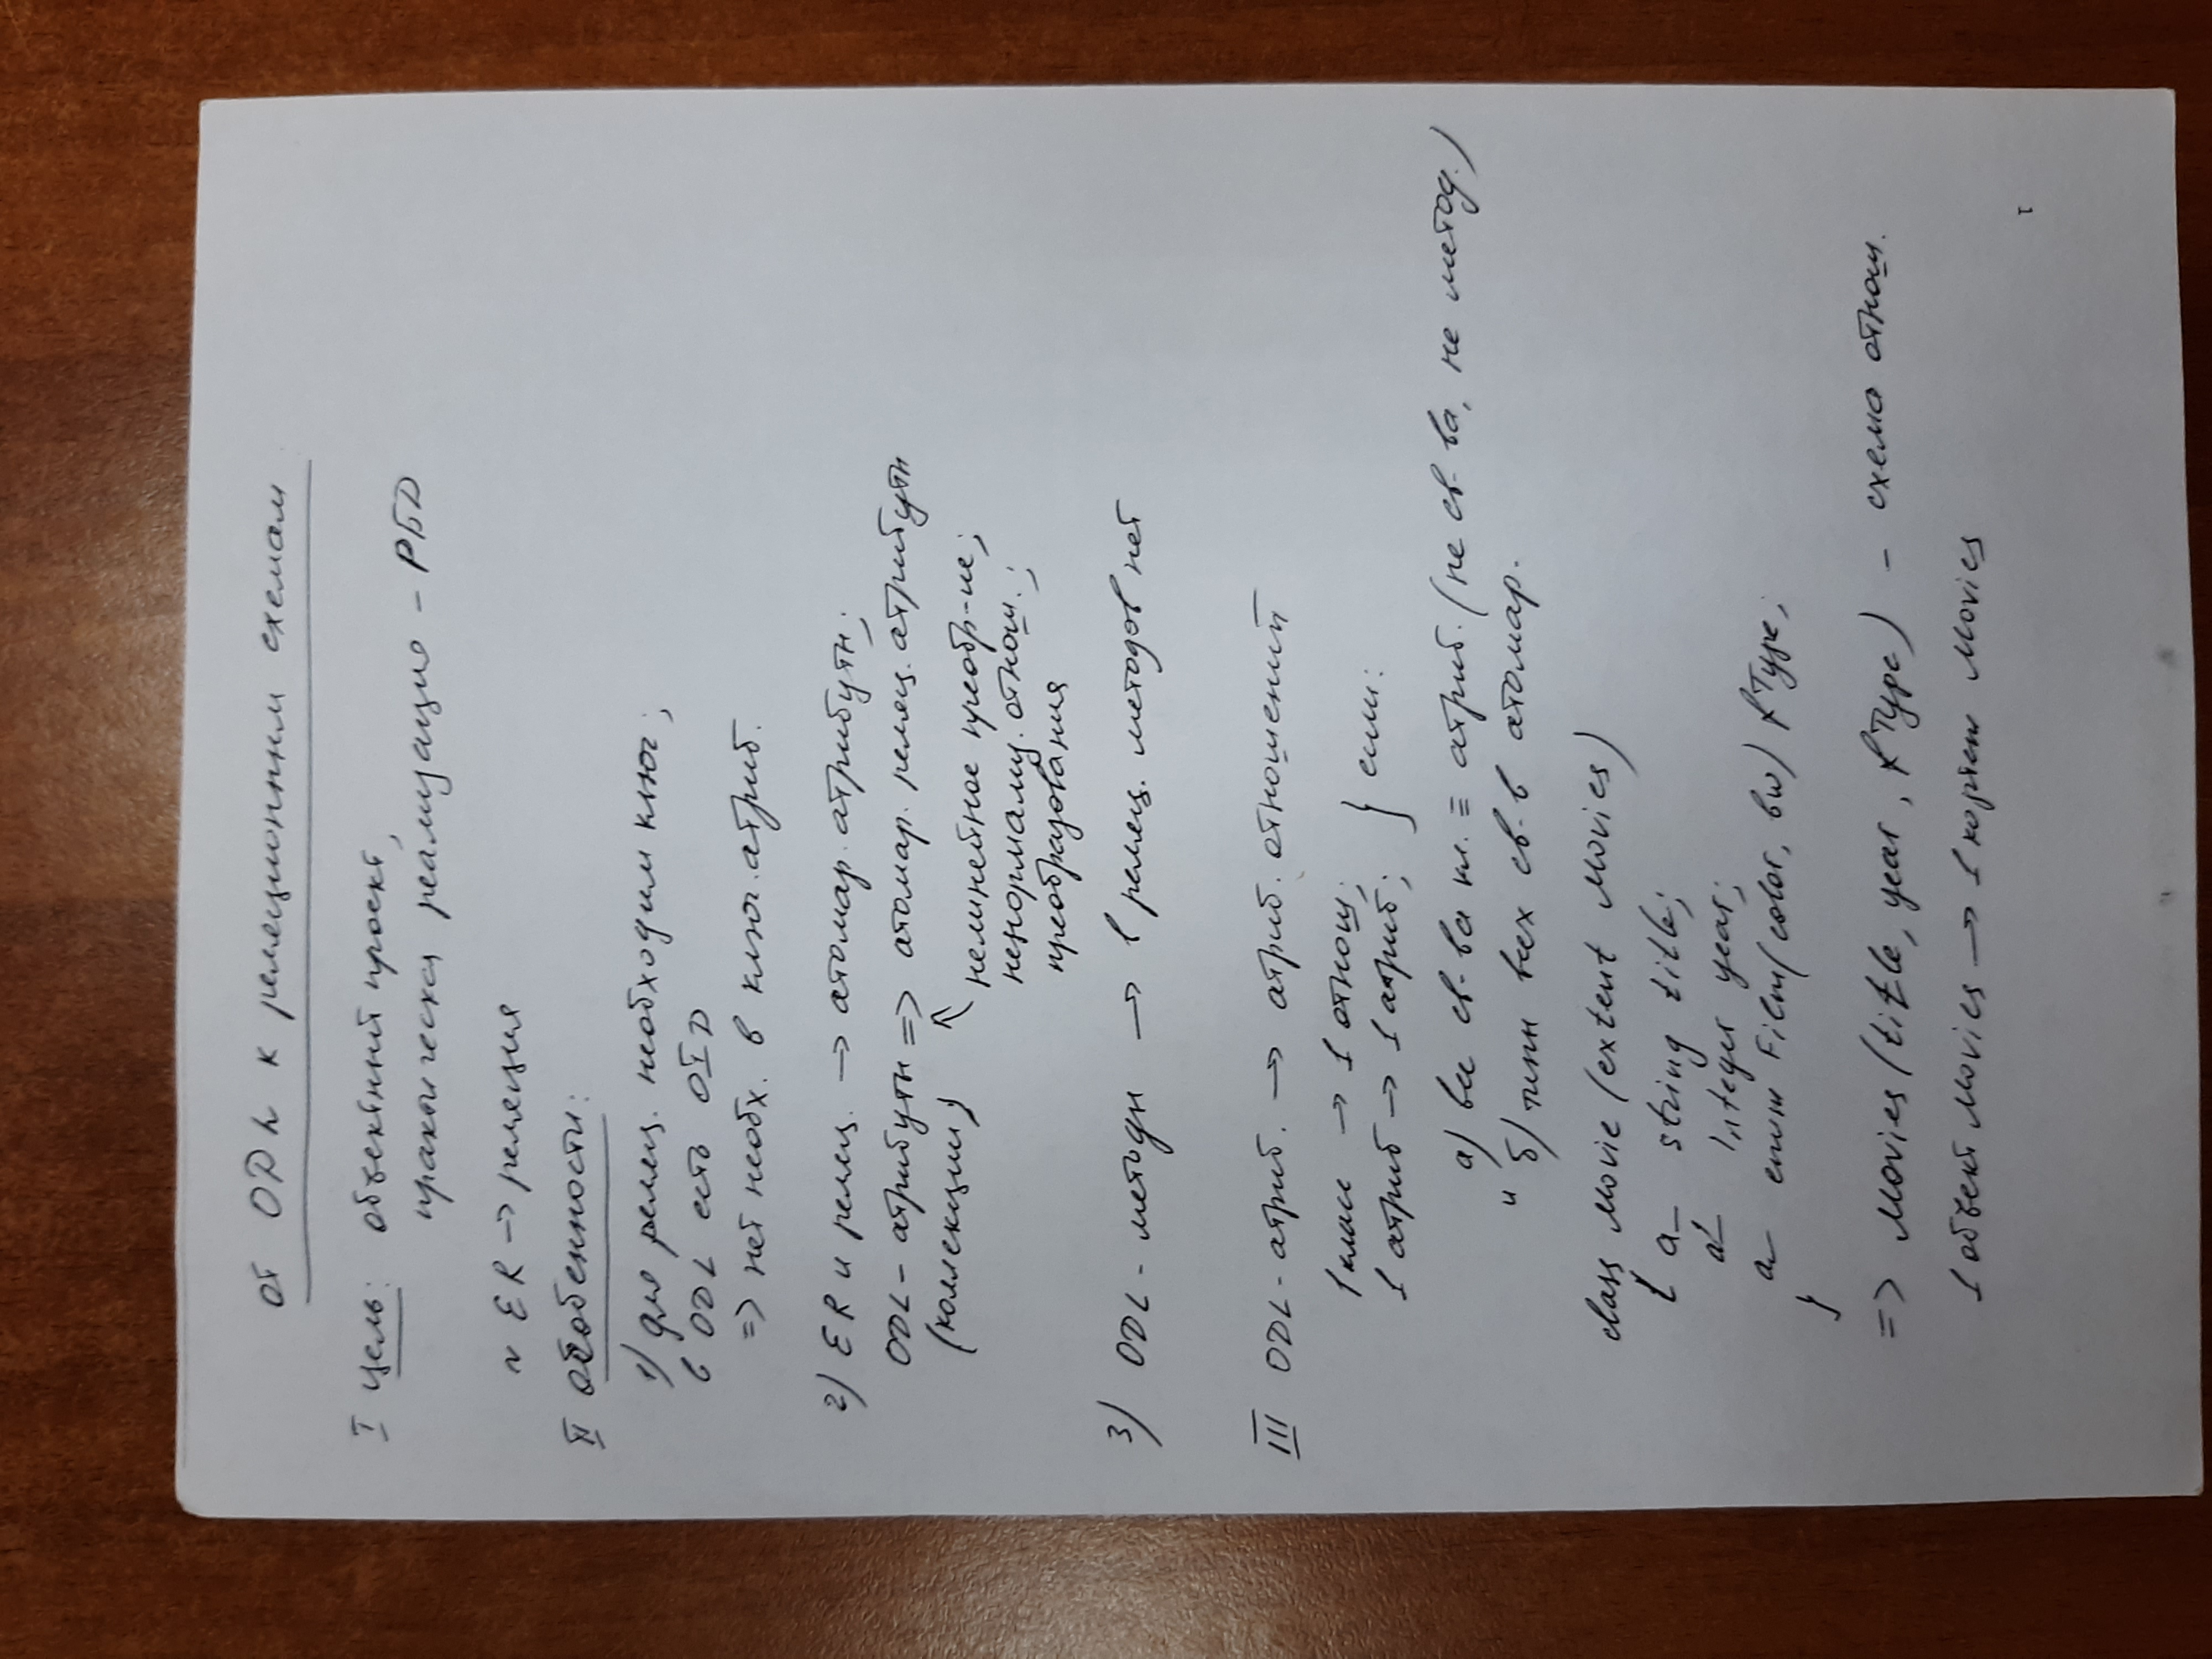 от ODL к реляционным схемам
I Цель: объектный проект,
практическая реализация – РБД
~ ER → реляция
II Особенности:
1) для реляц. необходим ключ;
в ODL есть OID
=> нет необх. в ключ. атриб.
2) ER и реляц. → атомар. атрибуты;
ODL – атрибуты => атомар. реляц. атрибуты
(коллекции)
нелинейное преобр-ие;
ненормализ. отнош.;
преобразования
3) ODL – методы → в реляц. методов нет
III ODL – атриб. → атриб. отношений
1 класс → 1 отнош;
1 атриб → 1 атриб; } если:
а) все св-ва кл. ≡ атриб. (не св-ва, не метод.)
и б) типы всех св-в атомар.
class Movie (extent Movies)
{ a– string title;
a– Integer year;
a– enum Film(color, bw) fType;
}
=> Movies (title, year, fType) – схема отнош.
1 объект Movies → 1 кортеж Movies
1